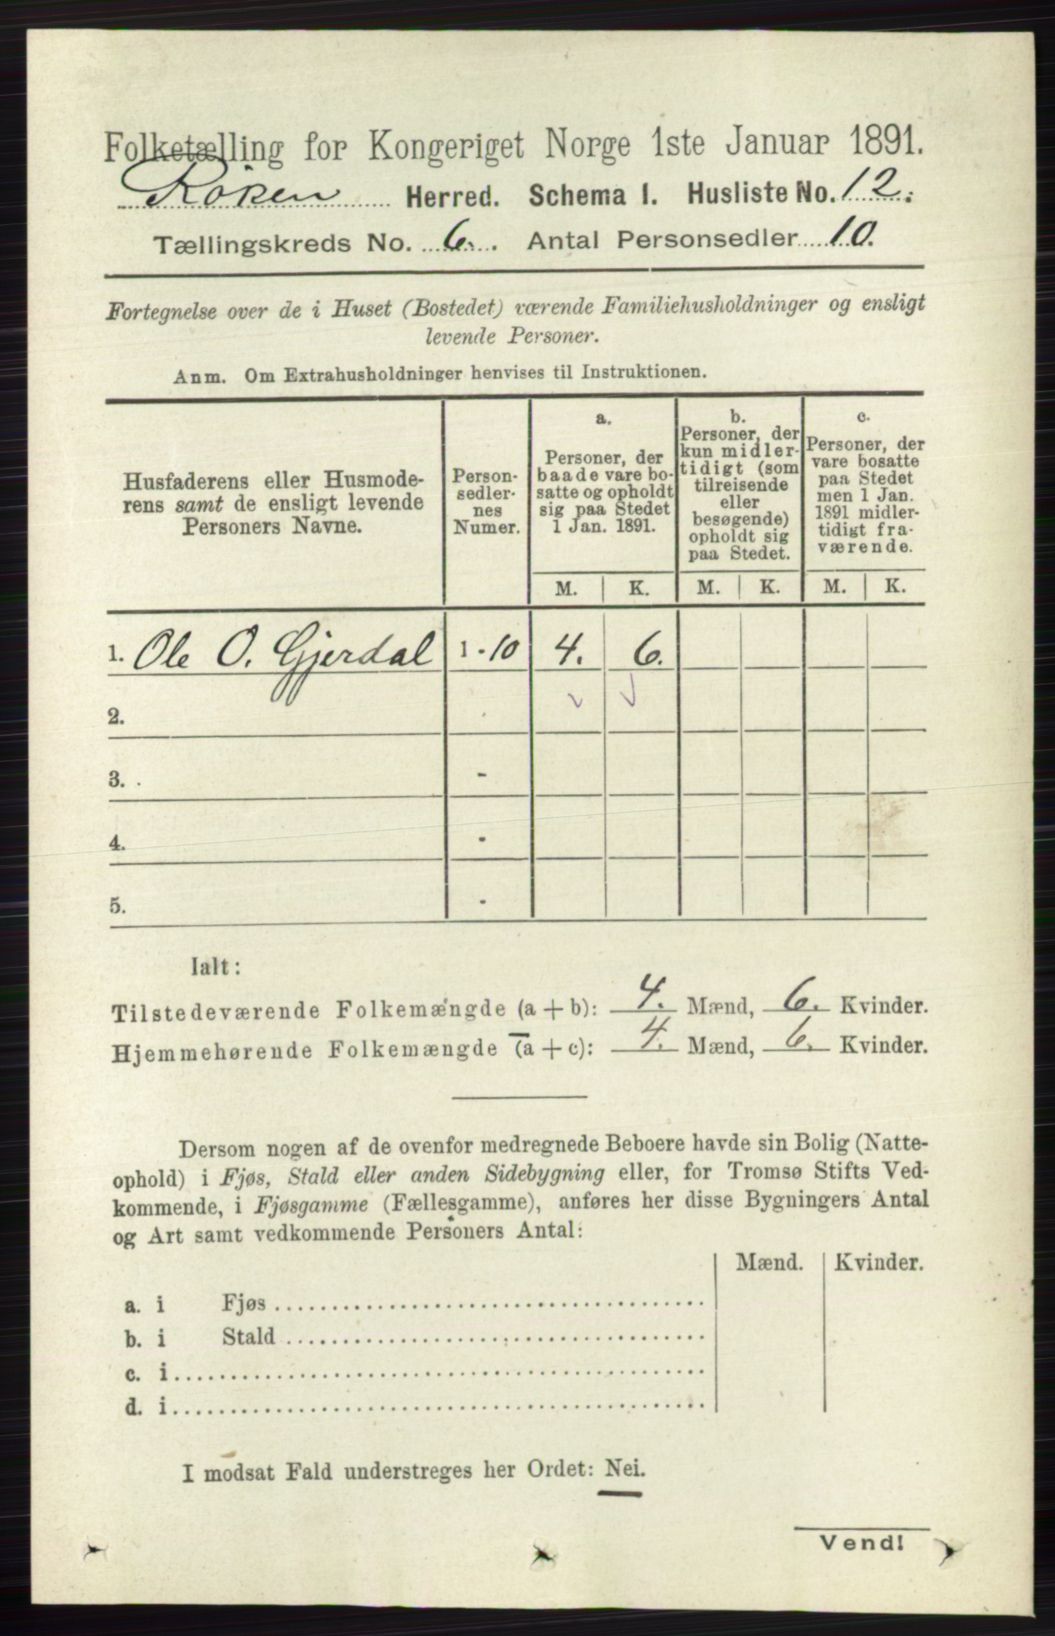 Folketælling for Kongeriget Norge 1ste Januar 1891.
Röken Herred. Schema I. Husliste No. 12.
Tællingskreds No. 6. Antal Personsedler 10.
Fortegnelse over de i Huset (Bostedet) værende Familiehusholdninger og ensligt
levende Personer.
Anm. Om Extrahusholdninger henvises til Instruktionen.
Husfaderens eller Husmode-
rens samt de ensligt levende
Personers Navne.
Person-
sedler-
nes
Numer.
a.
Personer, der
baade vare bo-
satte og opholdt
sig paa Stedet
1 Jan. 1891.
b.
Personer, der
kun midler-
tidigt (som
tilreisende
eller
besøgende)
opholdt sig
paa Stedet.
c.
Personer, der
vare bosatte
paa Stedet
men 1 Jan.
1891 midler-
tidigt fra-
værende.
M. K. M. K. M. K.
1. Ole O. Gjerdal 1 - 10 4. 6.
2.
3. -
4. -
5. -
Ialt:
Tilstedeværende Folkemængde (a + b): 4. Mænd, 6. Kvinder.
Hjemmehørende Folkemængde (a + c): 4. Mænd, 6. Kvinder.
Dersom nogen af de ovenfor medregnede Beboere havde sin Bolig (Natte-
ophold) i Fjøs, Stald eller anden Sidebygning eller, for Tromsø Stifts Ved-
kommende, i Fjøsgamme (Fællesgamme), anføres her disse Bygningers Antal
og Art samt vedkommende Personers Antal:
Mænd. Kvinder.
a. i Fjøs
b. i Stald
c. i
d. i
I modsat Fald understreges her Ordet: Nei.
Vend!